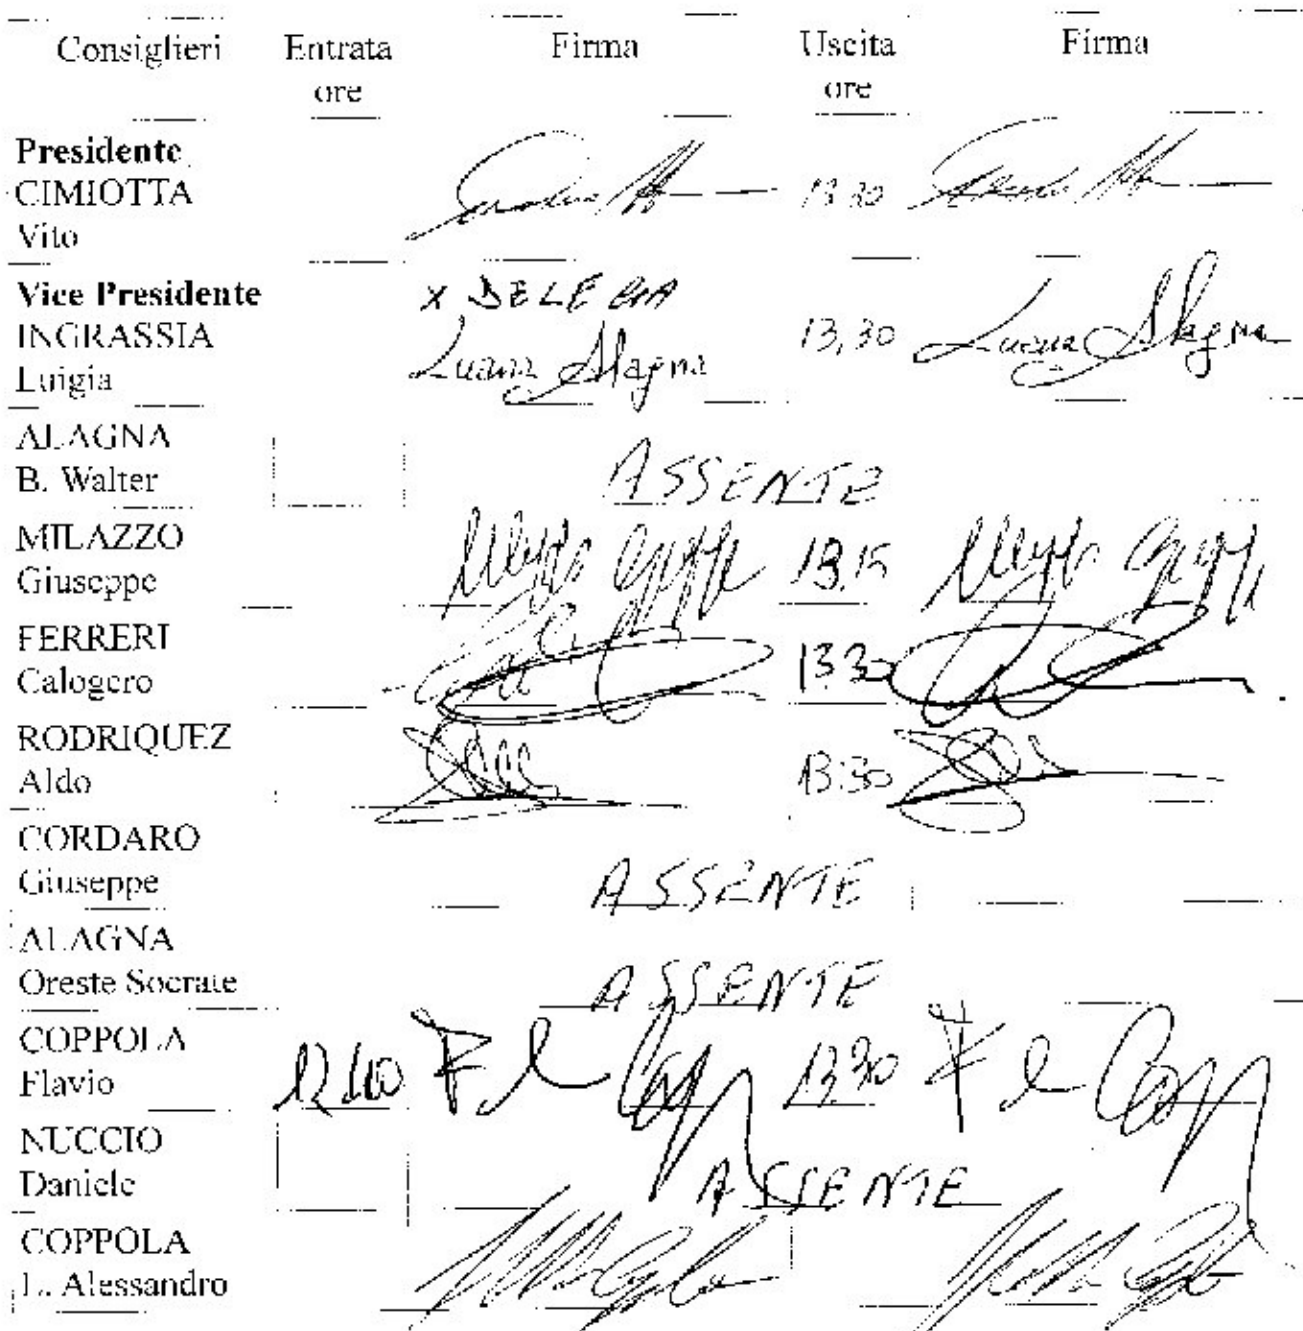 Consiglieri Entrata ore Firma Uscita ore Firma
Presidente
CIMIOTTA
Vito
13.30
Vice Presidente
INGRASSIA
Luigia
X DELEGA
Luana Alagna
13,30
Luana Alagna
ALAGNA
B. Walter
ASSENTE
MILAZZO
Giuseppe
13,15
FERRERI
Calogero
13.30
RODRIQUEZ
Aldo
13:30
CORDARO
Giuseppe
ASSENTE
ALAGNA
Oreste Socrate
ASSENTE
COPPOLA
Flavio
12,40
13,30
NUCCIO
Daniele
ASSENTE
COPPOLA
L. Alessandro